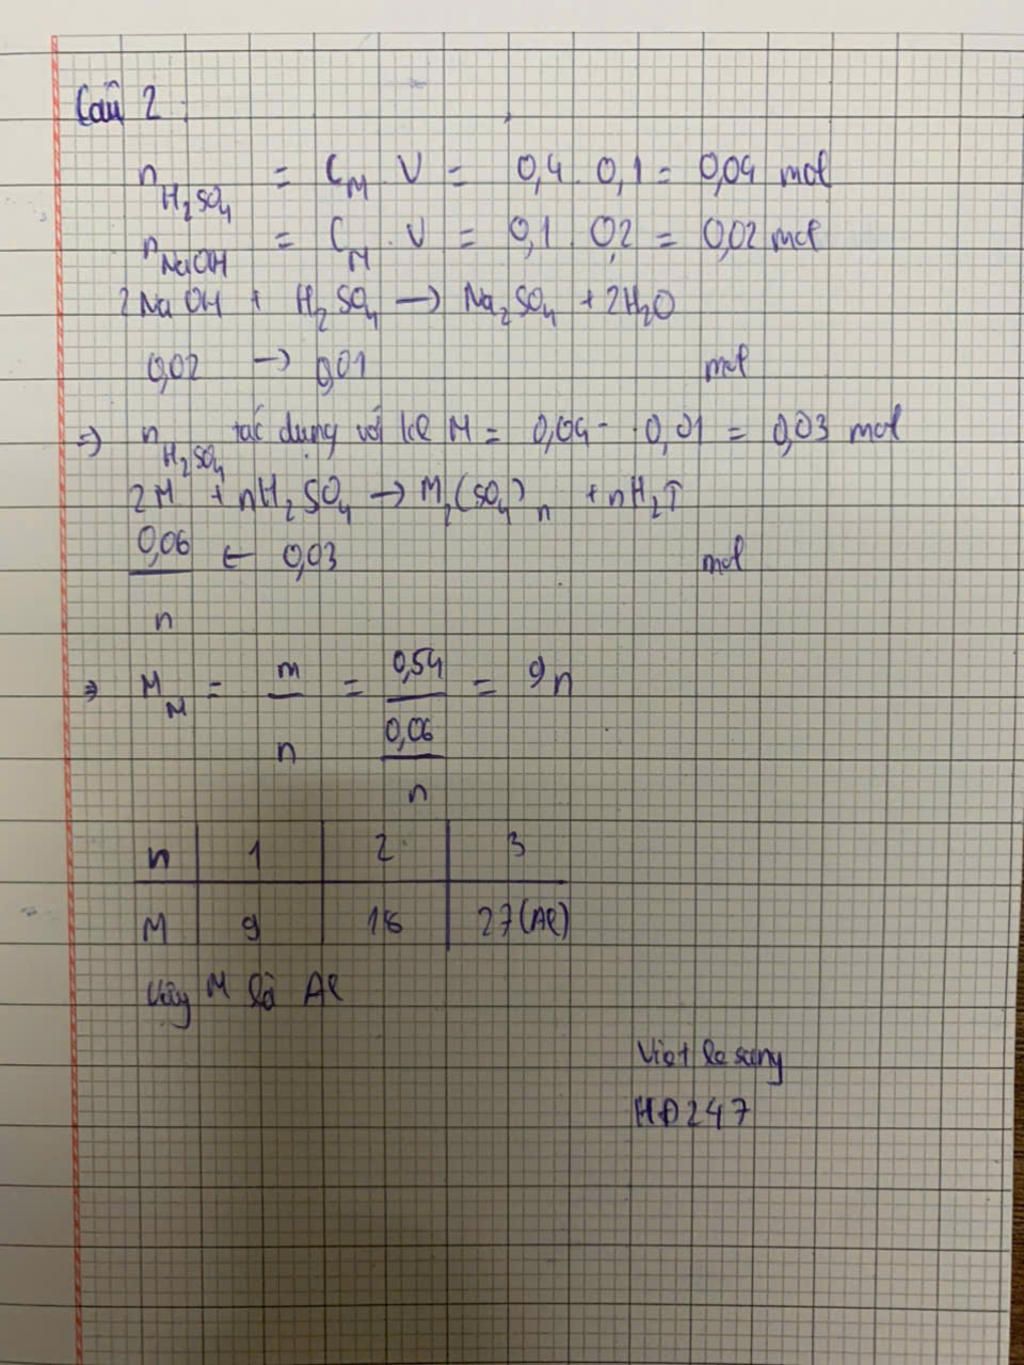 Câu 2:
n H₂SO₄ = C_M . V = 0,4 . 0,1 = 0,04 mol
n NaOH = C_M . V = 0,1 . 0,2 = 0,02 mol
2NaOH + H₂SO₄ → Na₂SO₄ + 2H₂O
0,02 → 0,01 mol
=> n H₂SO₄ tác dụng với kl M = 0,04 - 0,01 = 0,03 mol
2M + nH₂SO₄ → M₂(SO₄)n + nH₂↑
0,06 ← 0,03 mol
n
=> M_M = m/n = 0,54/(0,06/n) = 9n
n | 1 | 2 | 3
M | 9 | 18 | 27 (Al)
Vậy M là Al
Việt le sung
HĐ247